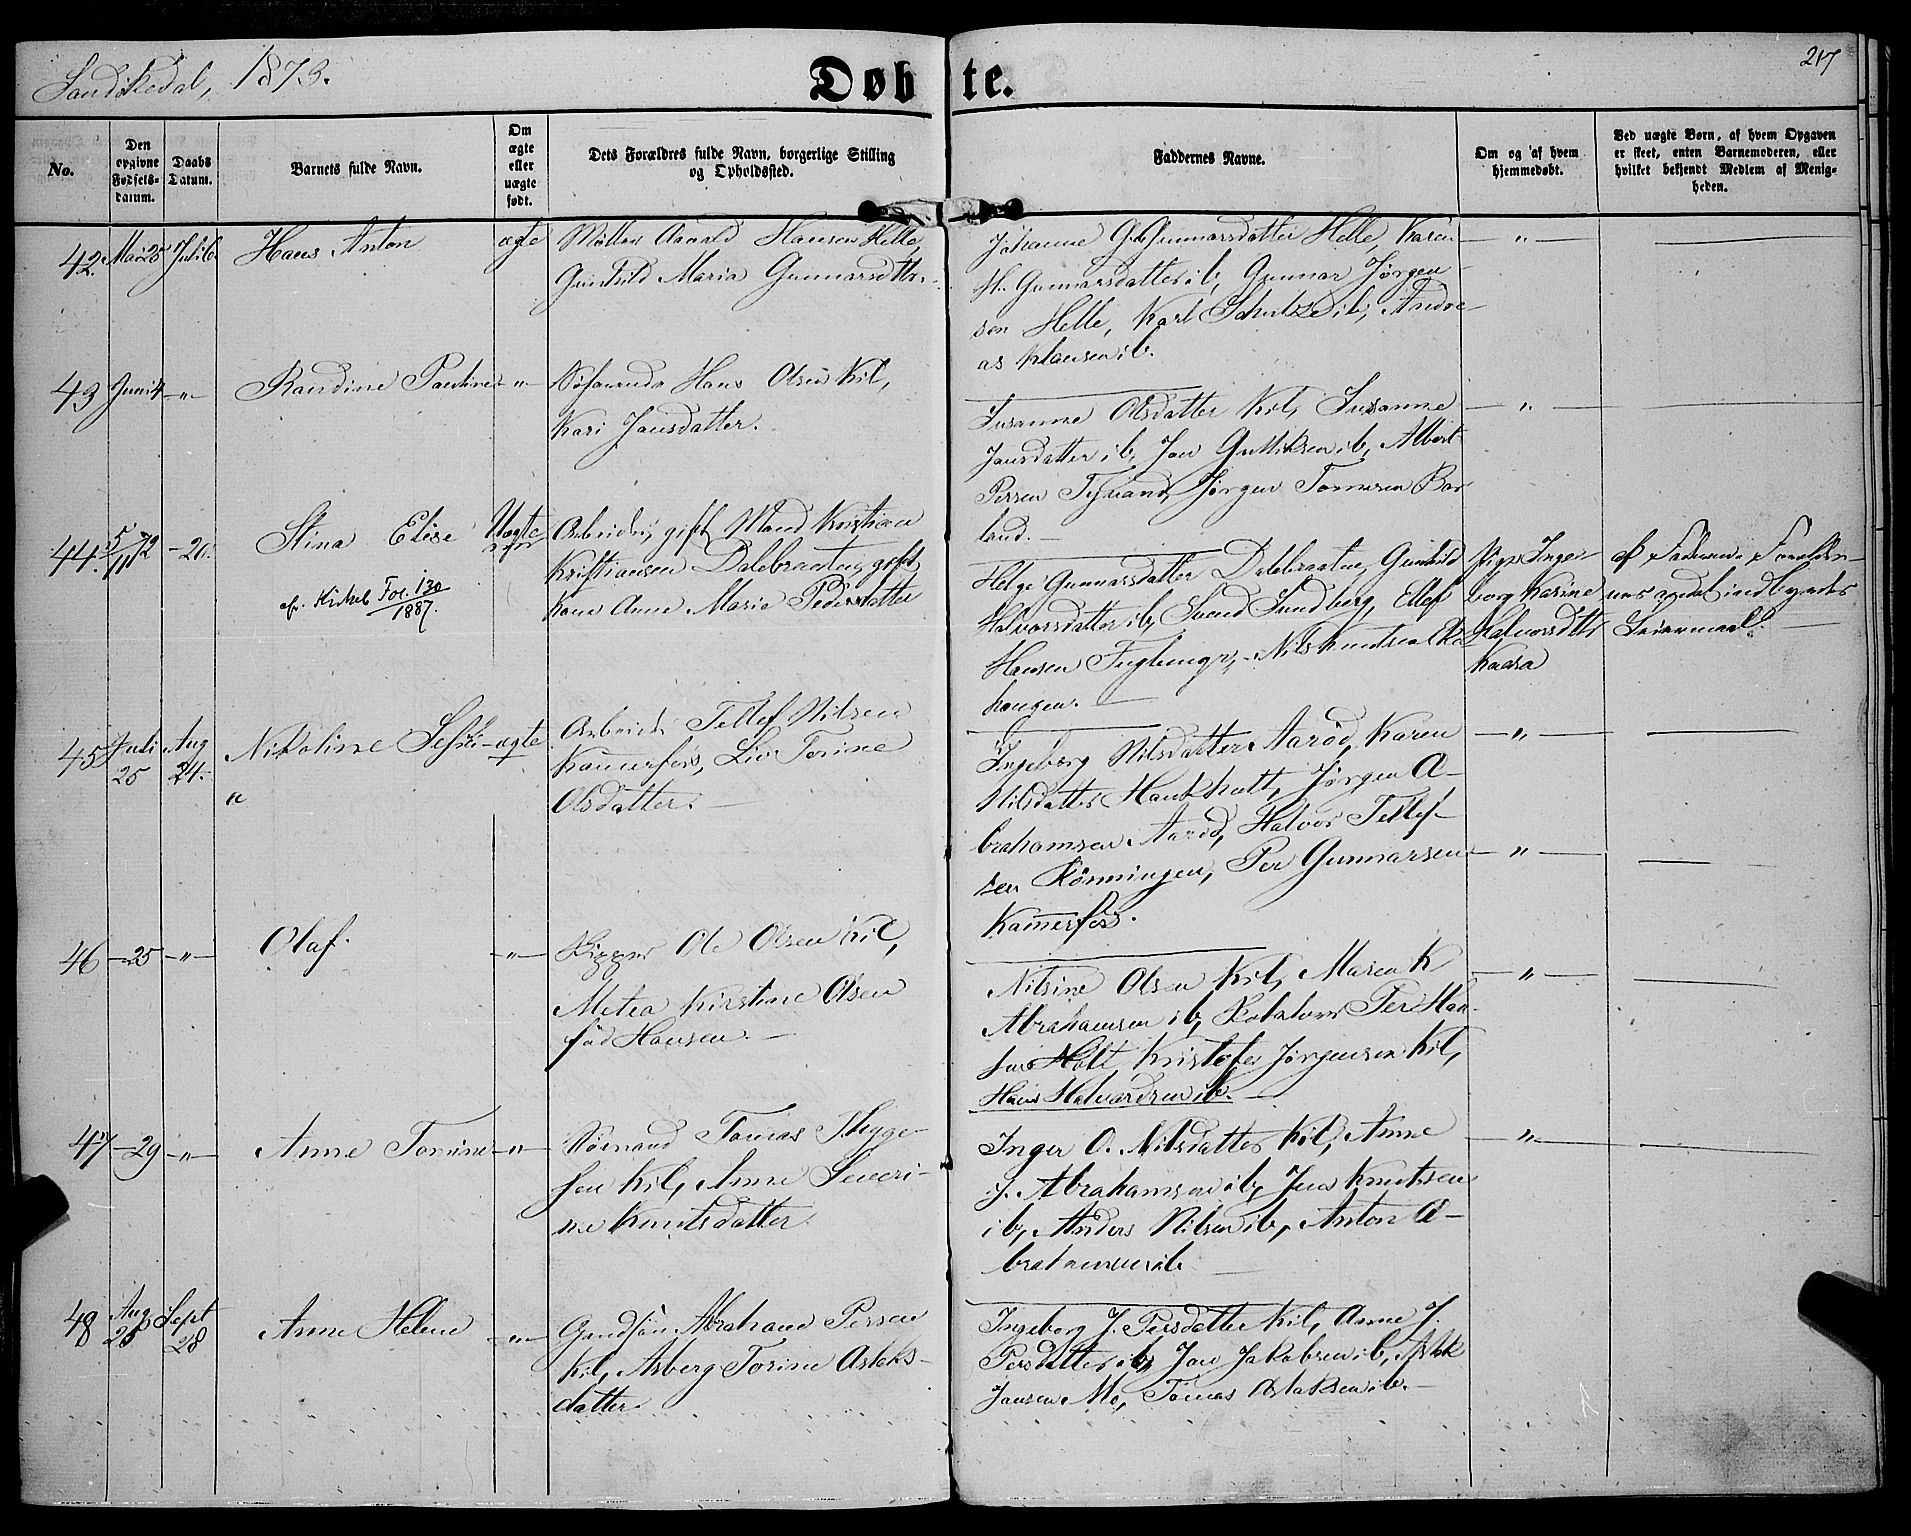 Sandøkedal, 1873.
Døbte.
217
No.
Den opgivne Fødsels-datum.
Daabs Datum.
Barnets fulde Navn.
Om ægte eller uægte født.
Dets Forældres fulde Navn, borgerlige Stilling og Opholdssted.
Faddernes Navne.
Om og af hvem hjemmedøbt.
Ved uægte Børn, af hvem Opgaven er skeet, enten Barnemoderen, eller hvilket bekjendt Medlem af Menigheden.
42. Mai 25 Juli 6. Hans Anton ægte
Møller Hansen Helle,
Gunhild Maria Gunnarsdttr.
Johanne G. Gunnarsdatter Helle, Karen
H. Gunnarsdatter ib, Gunnar Jørgen-
sen Helle, Karl Schulze ib, Andre-
as Klausen ib.
43 Juni 4 -"- Randine Pauline -"-
Søfarende Hans Olsen Kil,
Kari Jansdatter.
Susanne Olsdatter Kil, Susanne
Jansdatter ib, Jan Gulliksen ib, Albert
Persen Jørgen Bor
land.
44. 5/11 72 -20. Stina Elise Uægte
cfr. Fol. 130
1887.
Arbeider, gift Mand Kristian
Kristiansen Dalebraaten, gift
Kone Anne Maria Pedersdatter
Helge Gunnarsdatter Dalebraaten, Gunhild
Halvorsdatter ib, Svend Sundberg, Ellef
Hansen Nils Knutsen
haugen.
Pige Inge-
borg Karine
Halvorsdttr
Kaasa
af Faderen. Forældre-
nes andet indbyrdes
Leiermaal.
45 Juli 25 Aug 24. Nikoline Sefri- ægte
a
Arbeider Tellef Nilsen
Kammerfos, Liv Torine
Olsdatter.
Ingeborg Nilsdatter Aarød, Karen
Nilsdatter Haukholt, Jørgen A-
brahamsen Aarød, Halvor Tellef-
sen Rønningen, Per Gunnarsen
Kammerfos.
46 -25 -"- Olaf. -"-
Skipper Ole Olsen Kil,
Metea Kirstine Olsen
fød Hansen.
Nilsine Olsen Kil, Maren K
Abrahamsen ib, Per Han-
sen Holt, Kristofer Jørgensen Kil,
Hans Halvardsen ib.
47 -29 -"- Anne Tomine -"-
Sømand Tomas Thyge-
sen Kil, Anne Severi-
ne Knutsdatter.
Inger O. Nilsdatter Kil, Anne
J. Abrahamsen ib, Jens Knutsen
ib, Anders Nilsen ib, Anton A-
brahamsen ib
48 Aug 25 Sept 28 Anne Helene -"-
Abraham Persen
Kil, Asberg Torine Aslaks-
datter.
Ingeborg J. Persdatter Kil, Anne J.
Persdatter ib, Jan Jakobsen ib, Aslak
Jansen Mo, Tomas Aslaksen ib.